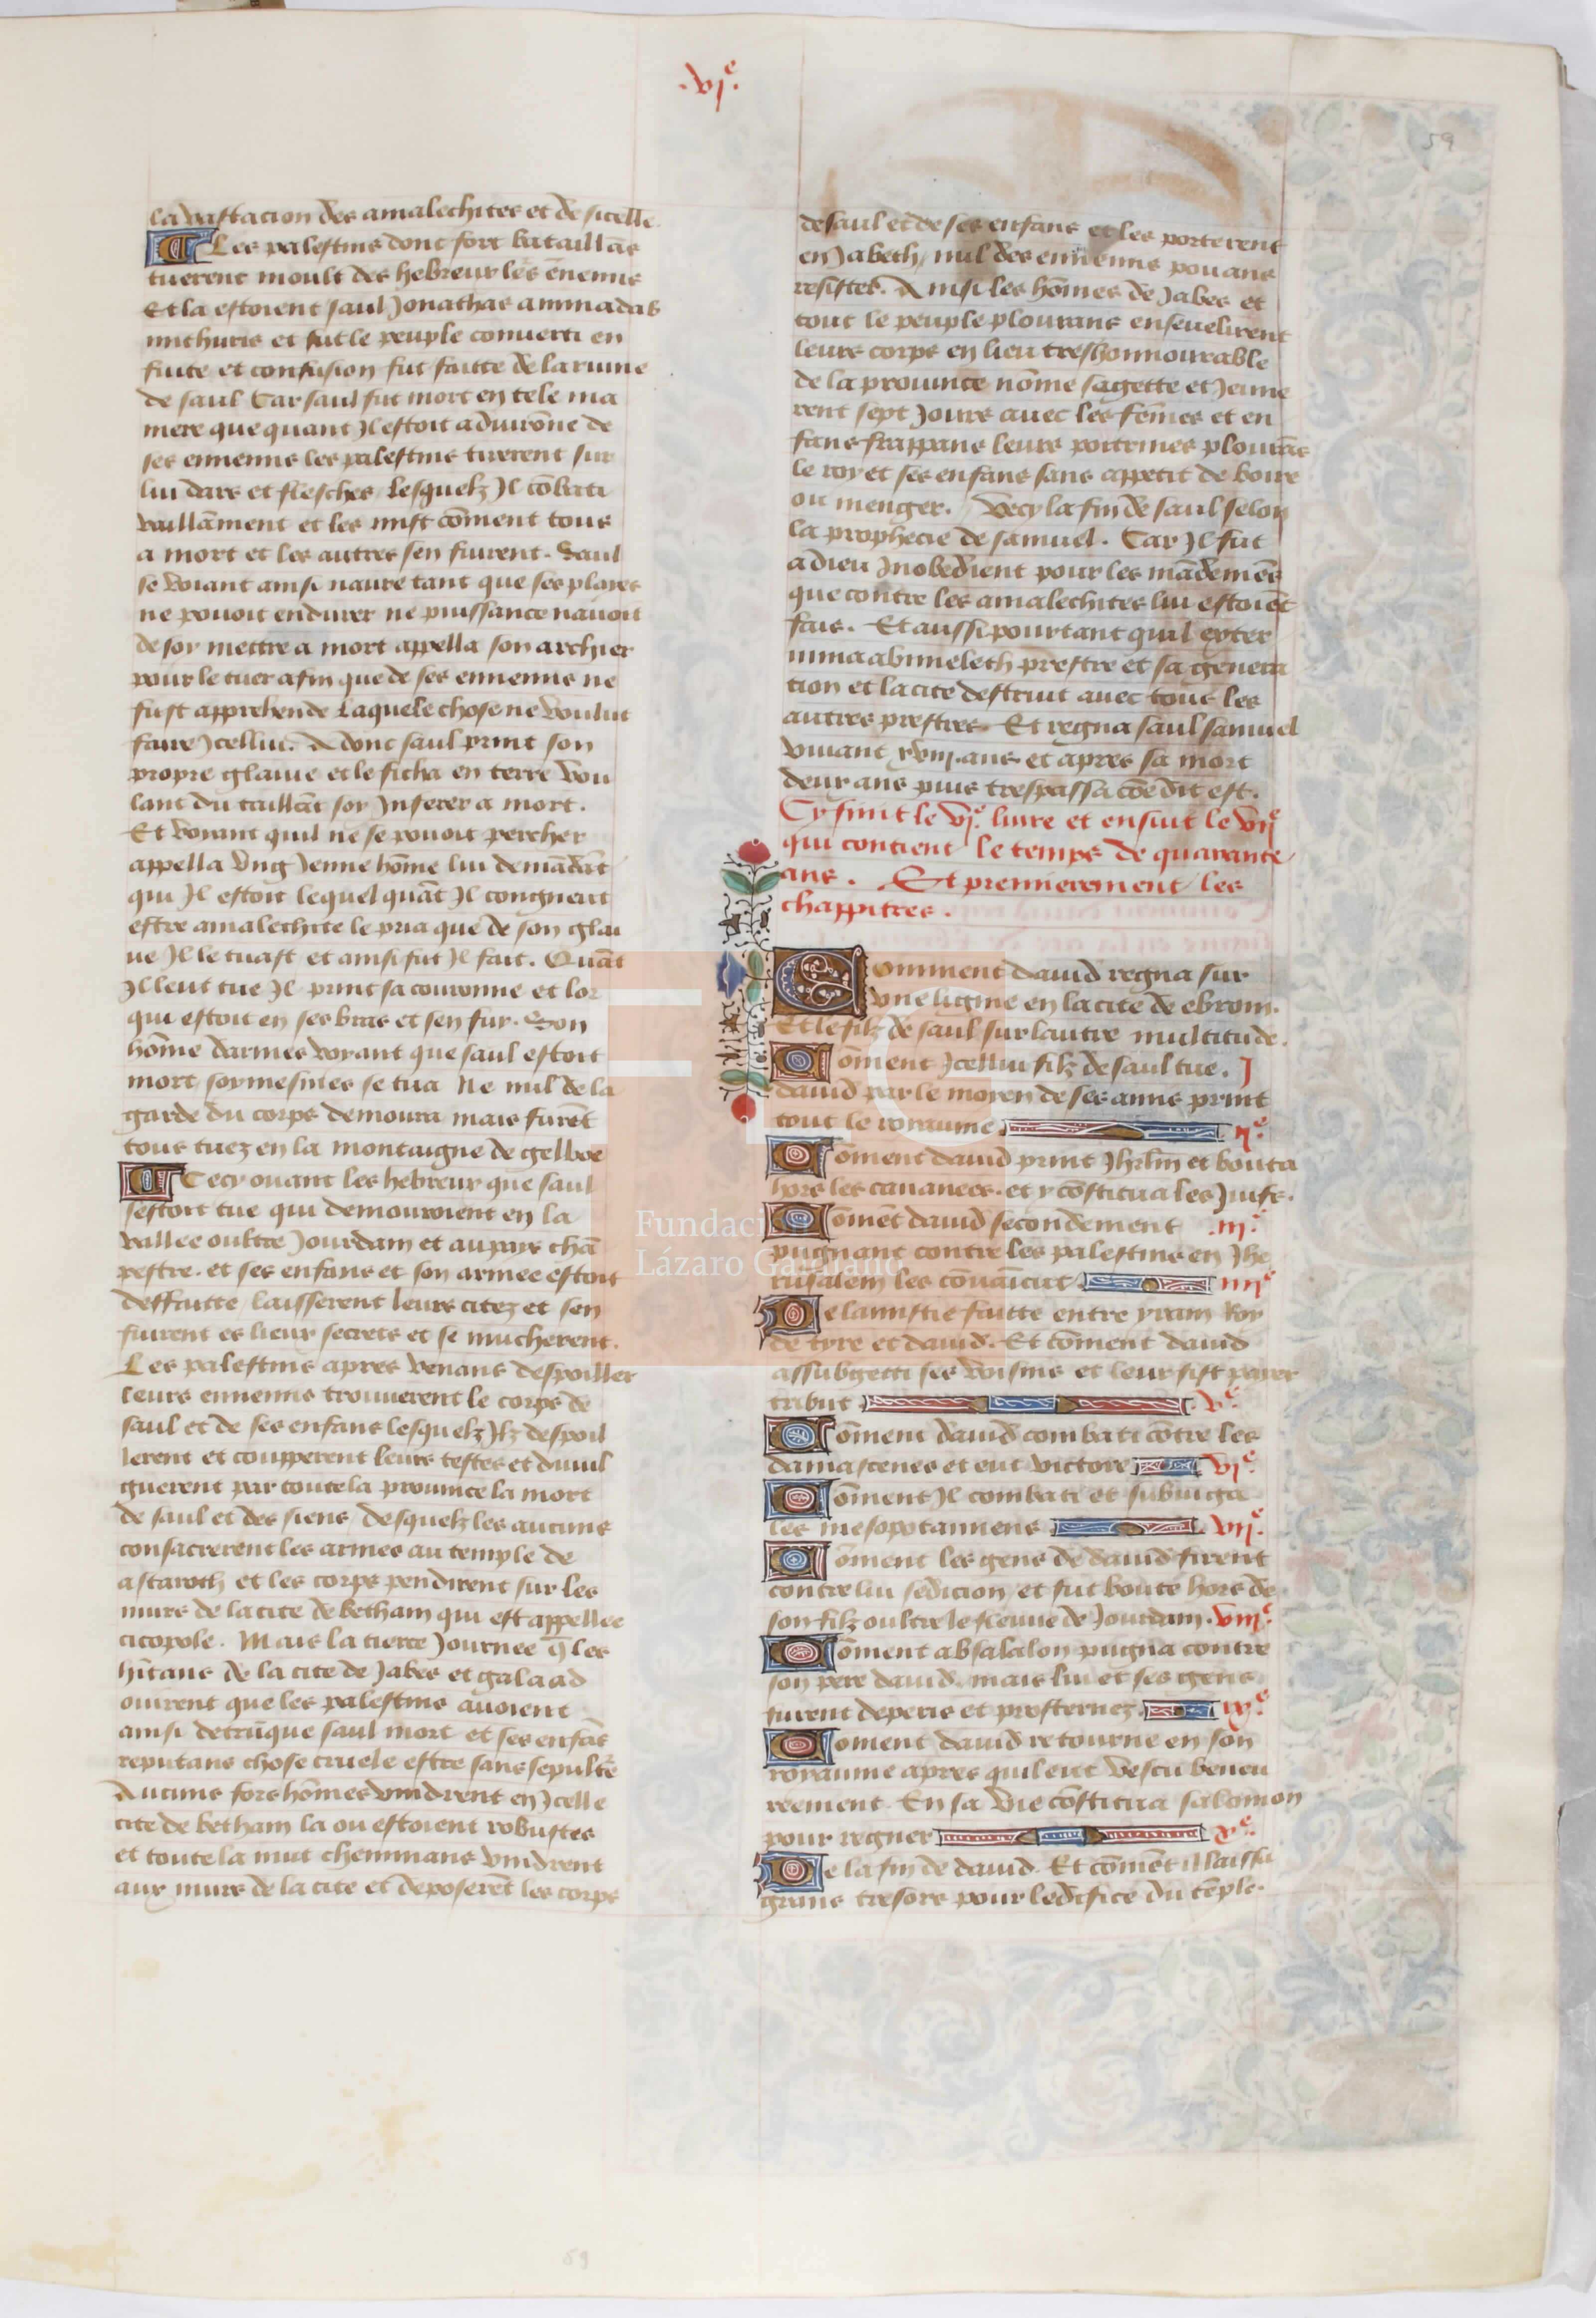 .vje.
59
la vastacion des amalechites et de sicelle
Les palestins donc fort bataillās
tuerent moult des hebreux les ēnemis
Et la estoient saul Jonathas aminadas
et fut le peuple conuerti en
fuite et confusion fut faitte de la ruine
de saul Car saul fut mort en tele ma
niere que quant Jl estoit aduirōne de
ses ennemis les palestins tirerent sur
lui dars et flesches Lesquelz Jl cōbati
vaillāment et les mist cōment tous
a mort et les autres sen fuirent. Saul
se voiant ainsi naure tant que ses playes
ne pouoit endurer ne puissance nauoit
de soy mettre a mort appella son archier
pour le tuer afin que de ses ennemis ne
fust apprehende Laquele chose ne voulut
faire Jcellui. Adonc saul print son
propre glaiue et le ficha en terre vou
lant du taillāt soy Jnserer a mort.
Et voiant quil ne se pouoit percher
appella vng Jenne hōme lui demādāt
qui Jl estoit lequel quāt Jl congneut
estre amalechite le pria que de son glai
ue Jl le tuast et ainsi fut Jl fait. Quāt
Jl leut tue Jl print sa couronne et lor
qui estoit en ses bras et sen fui. Son
hōme darmes voyant que saul estoit
mort soymesmes se tua Ne nul de la
garde du corps demoura mais furēt
tous tuez en la montaigne de gelboe
Cecy ouant les hebreux que saul
sestoit tue qui demouroient en la
vallee oultre Jourdam et au pays chā
pestre. et ses enfans et son armee estoit
deffaitte laisserent leurs citez et sen
fuirent es lieux secrets et se mucherent.
Les palestins apres venans despoiller
leurs ennemis trouuerent le corps de
saul et de ses enfans lesquelz Jlz despoil
lerent et coupperent leurs testes et diuul
guerent par toute la prouince la mort
de saul et des siens desquelz les aucuns
consacrerent les armes au temple de
astaroth et les corps pendirent sur les
murs de la cite de betham qui est appellee
cicopole. Mais la tierce Journee q̄ les
hītans de la cite de Jabes et galaad
ouirent que les palestins auoient
ainsi detrūque saul mort et ses enfās
reputans chose cruele estre sans sepultē
Aucuns fors hōmes vindrent en Jcelle
cite de betham la ou estoient robustes
et toute la nuit cheminans vindrent
aux murs de la cite et deposerēt les corps
de saul et de ses enfans et les porterent
en Jabeth, nul des ennemis pouans
resister. Ainsi les hōmes de Jabes et
tout le peuple plourans enseuelirent
leurs corps en lieu treshonnourable
de la prouince nōme sagette et Jeune
rent sept Jours auec les fēmes et en
fans frappans leurs poitrines plourās
le roy et ses enfans sans appetit de boire
ou menger. Vecy la fin de saul selon
la prophecie de samuel. Car Jl fut
a dieu Jnobedient pour les mādemēs
que contre les amalechites lui estoiēt
fais. Et aussi pourtant quil exter
mina abimelech prestre et sa genera
tion et la cite destruit auec tous les
autres prestres. Et regna saul samuel
viuant xviij. ans et apres sa mort
deux ans puis trespassa cōe dit est.
Cy finit le vje. liure et ensuit le vije
qui contient le temps de quarante
ans. Et premierement les
chappitres.
Comment dauid regna sur
vne lignie en la cite de ebrom.
Et le filz de saul sur lautre multitude.
Cōment Jcellui filz de saul tue. J
dauid par le moyen de ses amis print
tout le royaume. ije.
Cōment dauid print Jhrlm et bouta
hors les cananees. et y cōstitua les Juifs.
Comēt dauid secondement .iije.
pugnant contre les palestins en Jhe
rusalem les conuaīcut iiije
De lamistie faitte entre yram Roy
de tyre et dauid. Et cōment dauid
assubgetti ses voisins et leur fist payer
tribut ve.
Cōment dauid combati cōtre les
damascenes et eut victore vje.
Cōment Jl combati et subiuga
les mesopotamiens vije.
Cōment les gens de dauid firent
contre lui sedicion et fut boute hors de
son filz oultre le fleuue de Jourdam. viije.
Cōment absalalon pugna contre
son pere dauid. mais lui et ses gens
furent deperis et prosternez. ixe.
Coment dauid retourne en son
royaume apres quil eut vescu beneu
reement. En sa vie cōstitua salomon
pour regner xe.
De la fin de dauid. Et cōmēt il laissa
grans tresors pour ledifice du tēple.
Fundaci
Lázaro Galdiano
59